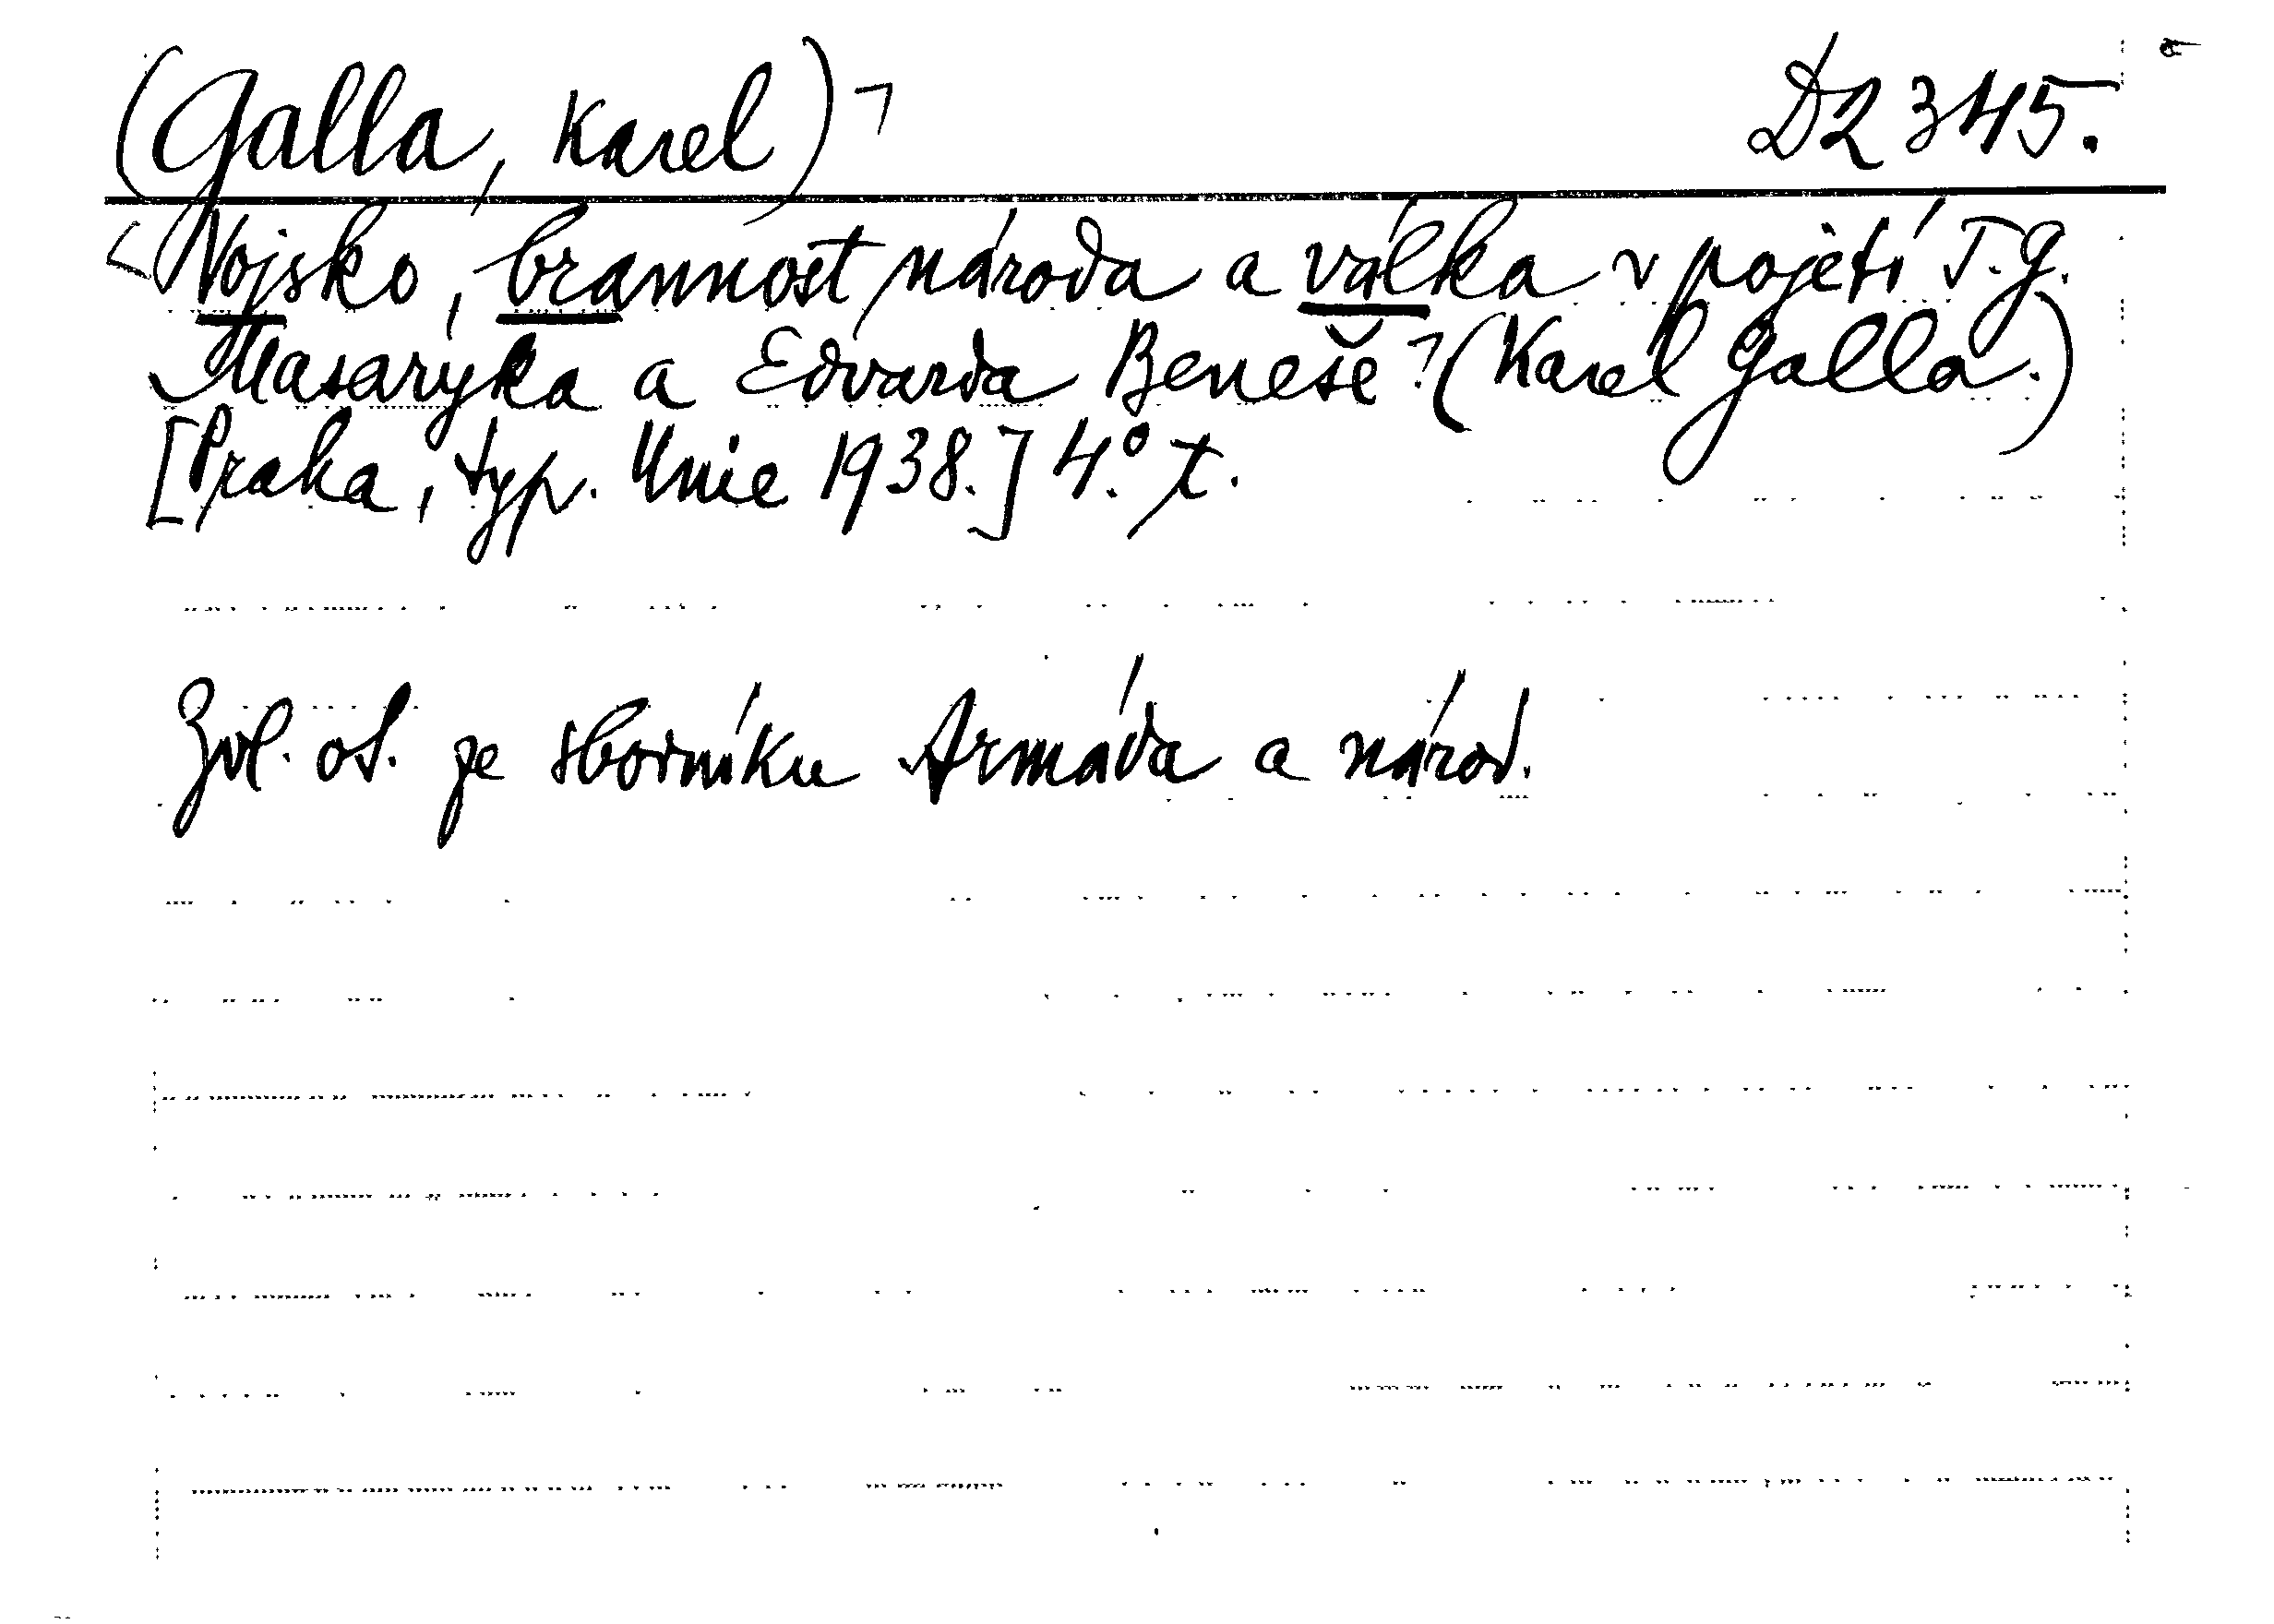 (Galla, Karel) ¬ D2345.
<Vojsko, brannost národa a válka v pojetí T.G.
Masaryka a Edvarda Beneše¬ (Karel Galla.)
[Praha, typ. Unie 1938.] 4.°
Zvl. ot. ze sborníku Armáda a národ.